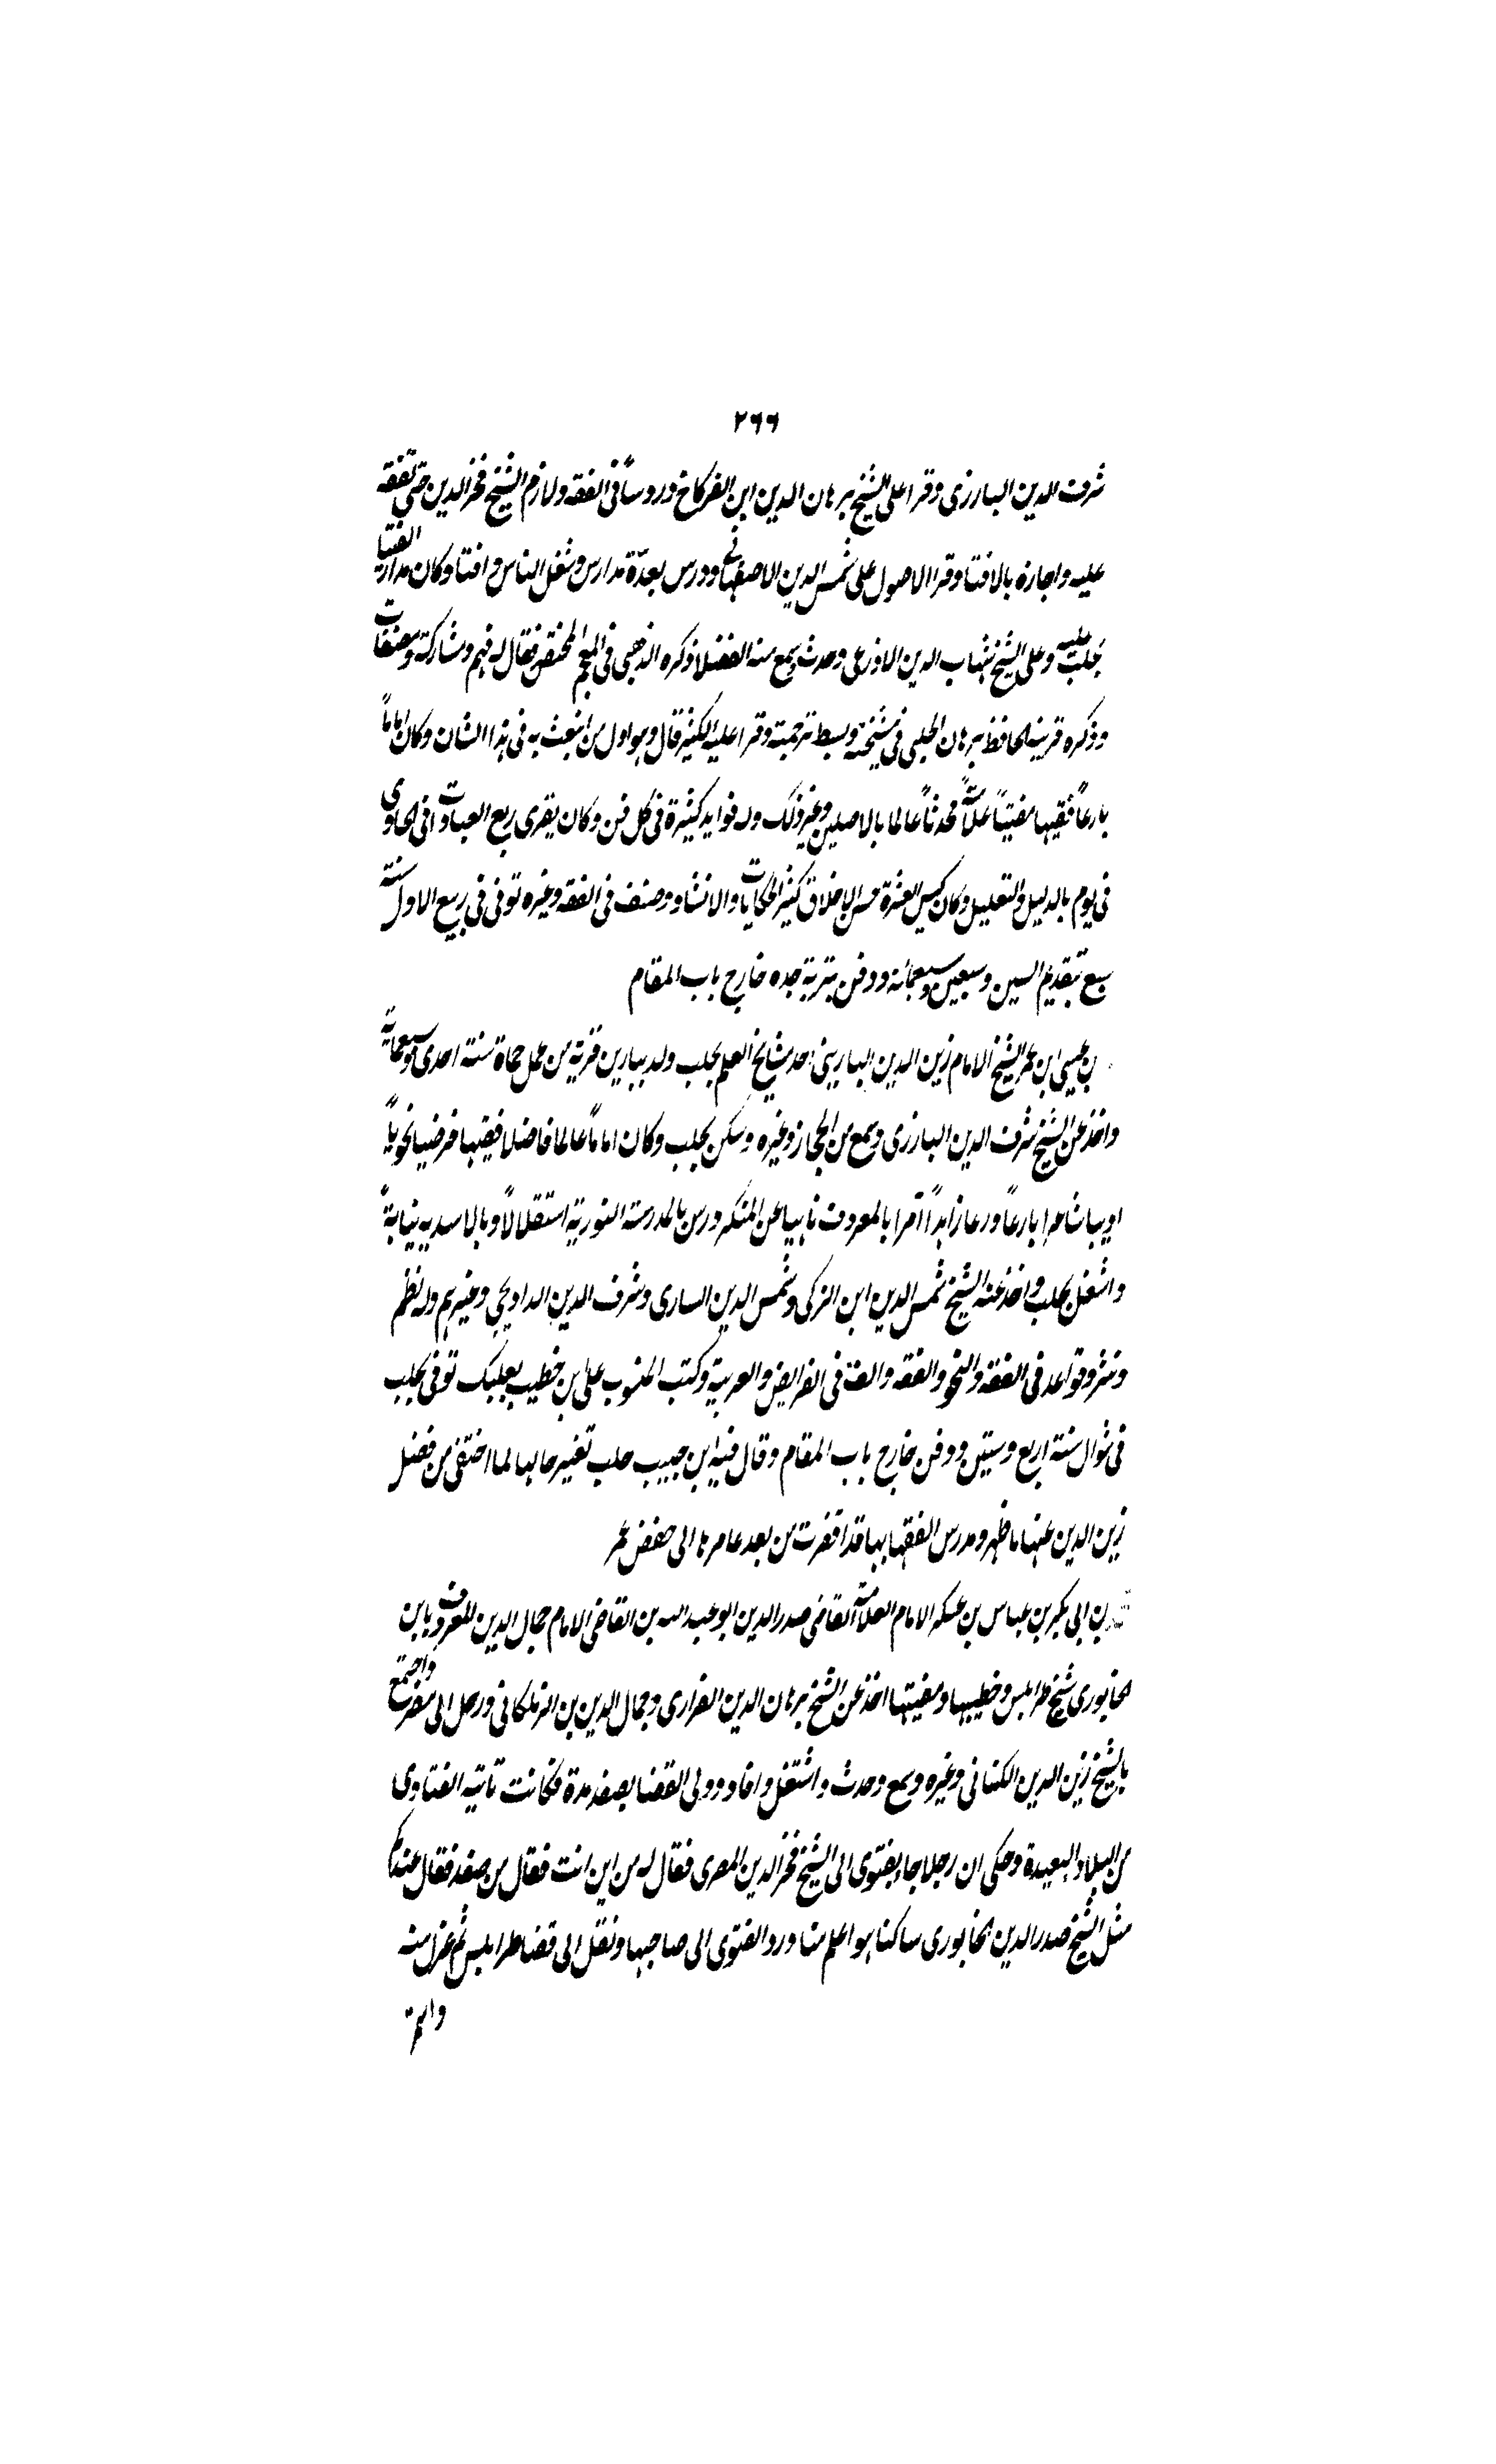 ٢٦٦
شرف الدين البارزى وقرا على الشيخ برهان الدين ابن الفركاح دروساً فى الفقه ولازم الشيخ فخر الدين حتى تفقه
عليه واجازه بالافتا وقرا الاصول على شمس الدين الاصفهانى ودرس بعدّة مدارس وشغل الناس وافتا وكان مدار الفتيا
بحلب عليه وعلى الشيخ شهاب الدين الاذرعى وحدث وسمع منه الفضلا ذكره الذهبى فى المعجم المختص فقال له فهم ومشاركة ومصنفات
وذكره قرينه الحافظ برهان الحلبى فى مشيخته وبسط ترجمته وقرا عليه الكثير قال وهو اول من انبعث به فى هذا الشان وكان اماماً
بارعاً فقيها مفتياً علامةً محدثاً عالما بالاصلين وغير ذلك وله فوايد كثيرة فى كل فن وكان يقرى ربع العبادات فى الحاوى
فى يوم بالدليل والتعليل وكان كيس العشرة حسن الاخلاق كثير الحكايات والانشاد وصنف فى الفقه وغيره توفى فى ربيع الاول سنة
سبع بتقديم السين وسبعين وسبعمائة ودفن بتربة جده خارج باب المقام
بن عيسى ابن عمر الشيخ الامام زين الدين البارينى احد مشايخ العلم بحلب ولد ببارين قرية من عمل حماة سنة احدى وسبعماية
واخذ عن الشيخ شرف الدين البارزى وسمع من الحجاز وغيره وسكن بحلب وكان اماماً عالما فاضلا فقيها فرضيا نحوياً
اديبا شاعرا بارعاً ورعا زاهداً آمرا بالمعروف ناهيا عن المنكر درس بالمدرسة النورية استقلالاً وبالاسدية نيابةً
واشغل بحلب واخذ عنه الشيخ شمس الدين ابن الزكى وشمس الدين السارى وشرف الدين الداديخى وغيرهم وله نظم
ونثر وقواعد فى الفقه والنحو والفقه والف فى الفرايض والعربية وكتب المنسوب على بن خطيب بعلبك توفى بحلب
فى شوال سنة اربع وستين ودفن خارج باب المقام وقال فيه ابن حبيب حلب تغير حالها لما اختفى من فضل
زين الدين عنها ما ظهر ومدرس الفقها بها قد اقفرت من بعد عامرها الى حفض عمر
بن ابى بكر بن عباس بن عسكر الامام العلامة القاضى صدر الدين ابو عبد الله بن القاضى الامام جمال الدين المعروف بابن
الخابورى شيخ طرابلس وخطيبها ومفتيها اخذ عن الشيخ برهان الدين الفزارى وجمال الدين بن الزملكانى ورحل الى مصر واجتمع
بالشيخ زين الدين الكنانى وغيره وسمع وحدث واشتغل وافاد وولى القضا بصفد مدة فكانت تاتيه الفتاوى
من البلاد البعيدة وحكى ان رجلا جاء بفتوى الى الشيخ فخر الدين المصرى فقال له من اين انت فقال من صفد فقال عندكم
مثل الشيخ صدر الدين الخابورى ساكنا هو اعلم منا ورد الفتوى الى صاحبها ونقل الى قضا طرابلس ثم عزل منه
واستمر